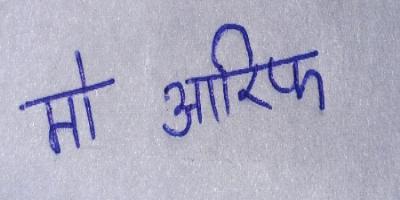 मो आरिफ